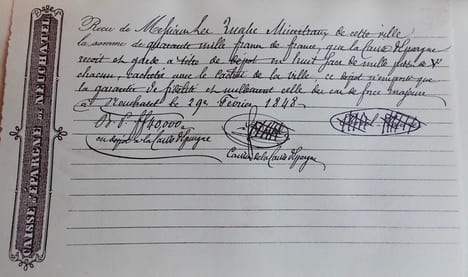 CAISSE D'ÉPARGNE DE NEUCHATEL
Recu de Messieurs les Quatre Ministraux de cette ville
la somme de quarante mille francs de france, que la Caisse d'Epargne
recoit et garde à titre de dépôt en huit sacs de mille pièces de 5f
chacun, cachetés avec le cachet de la ville ce dépôt n'emporte que
la garantie de fidélité et nullement celle du cas de force majeure
à Neuchatel le 29e Février 1848
B. P. ff 40,000.
en dépôt à la Caisse d'Epargne
Caisse de la Caisse d'Epargne